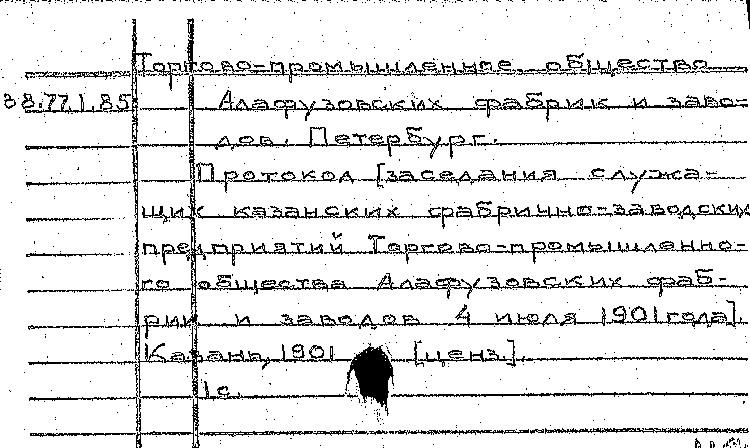 Торгово-промышленное общество
38.771.85 Алафузовских фабрик и заво-
дов. Петербург.
Протокол [заседания служа-
щих казанских фабрично-заводских
предприятий Торгово-промышленно-
го общества Алафузовских фаб-
рик и заводов 4 июля 1901 года].
Казань, 1901 [ценз.].
1с.